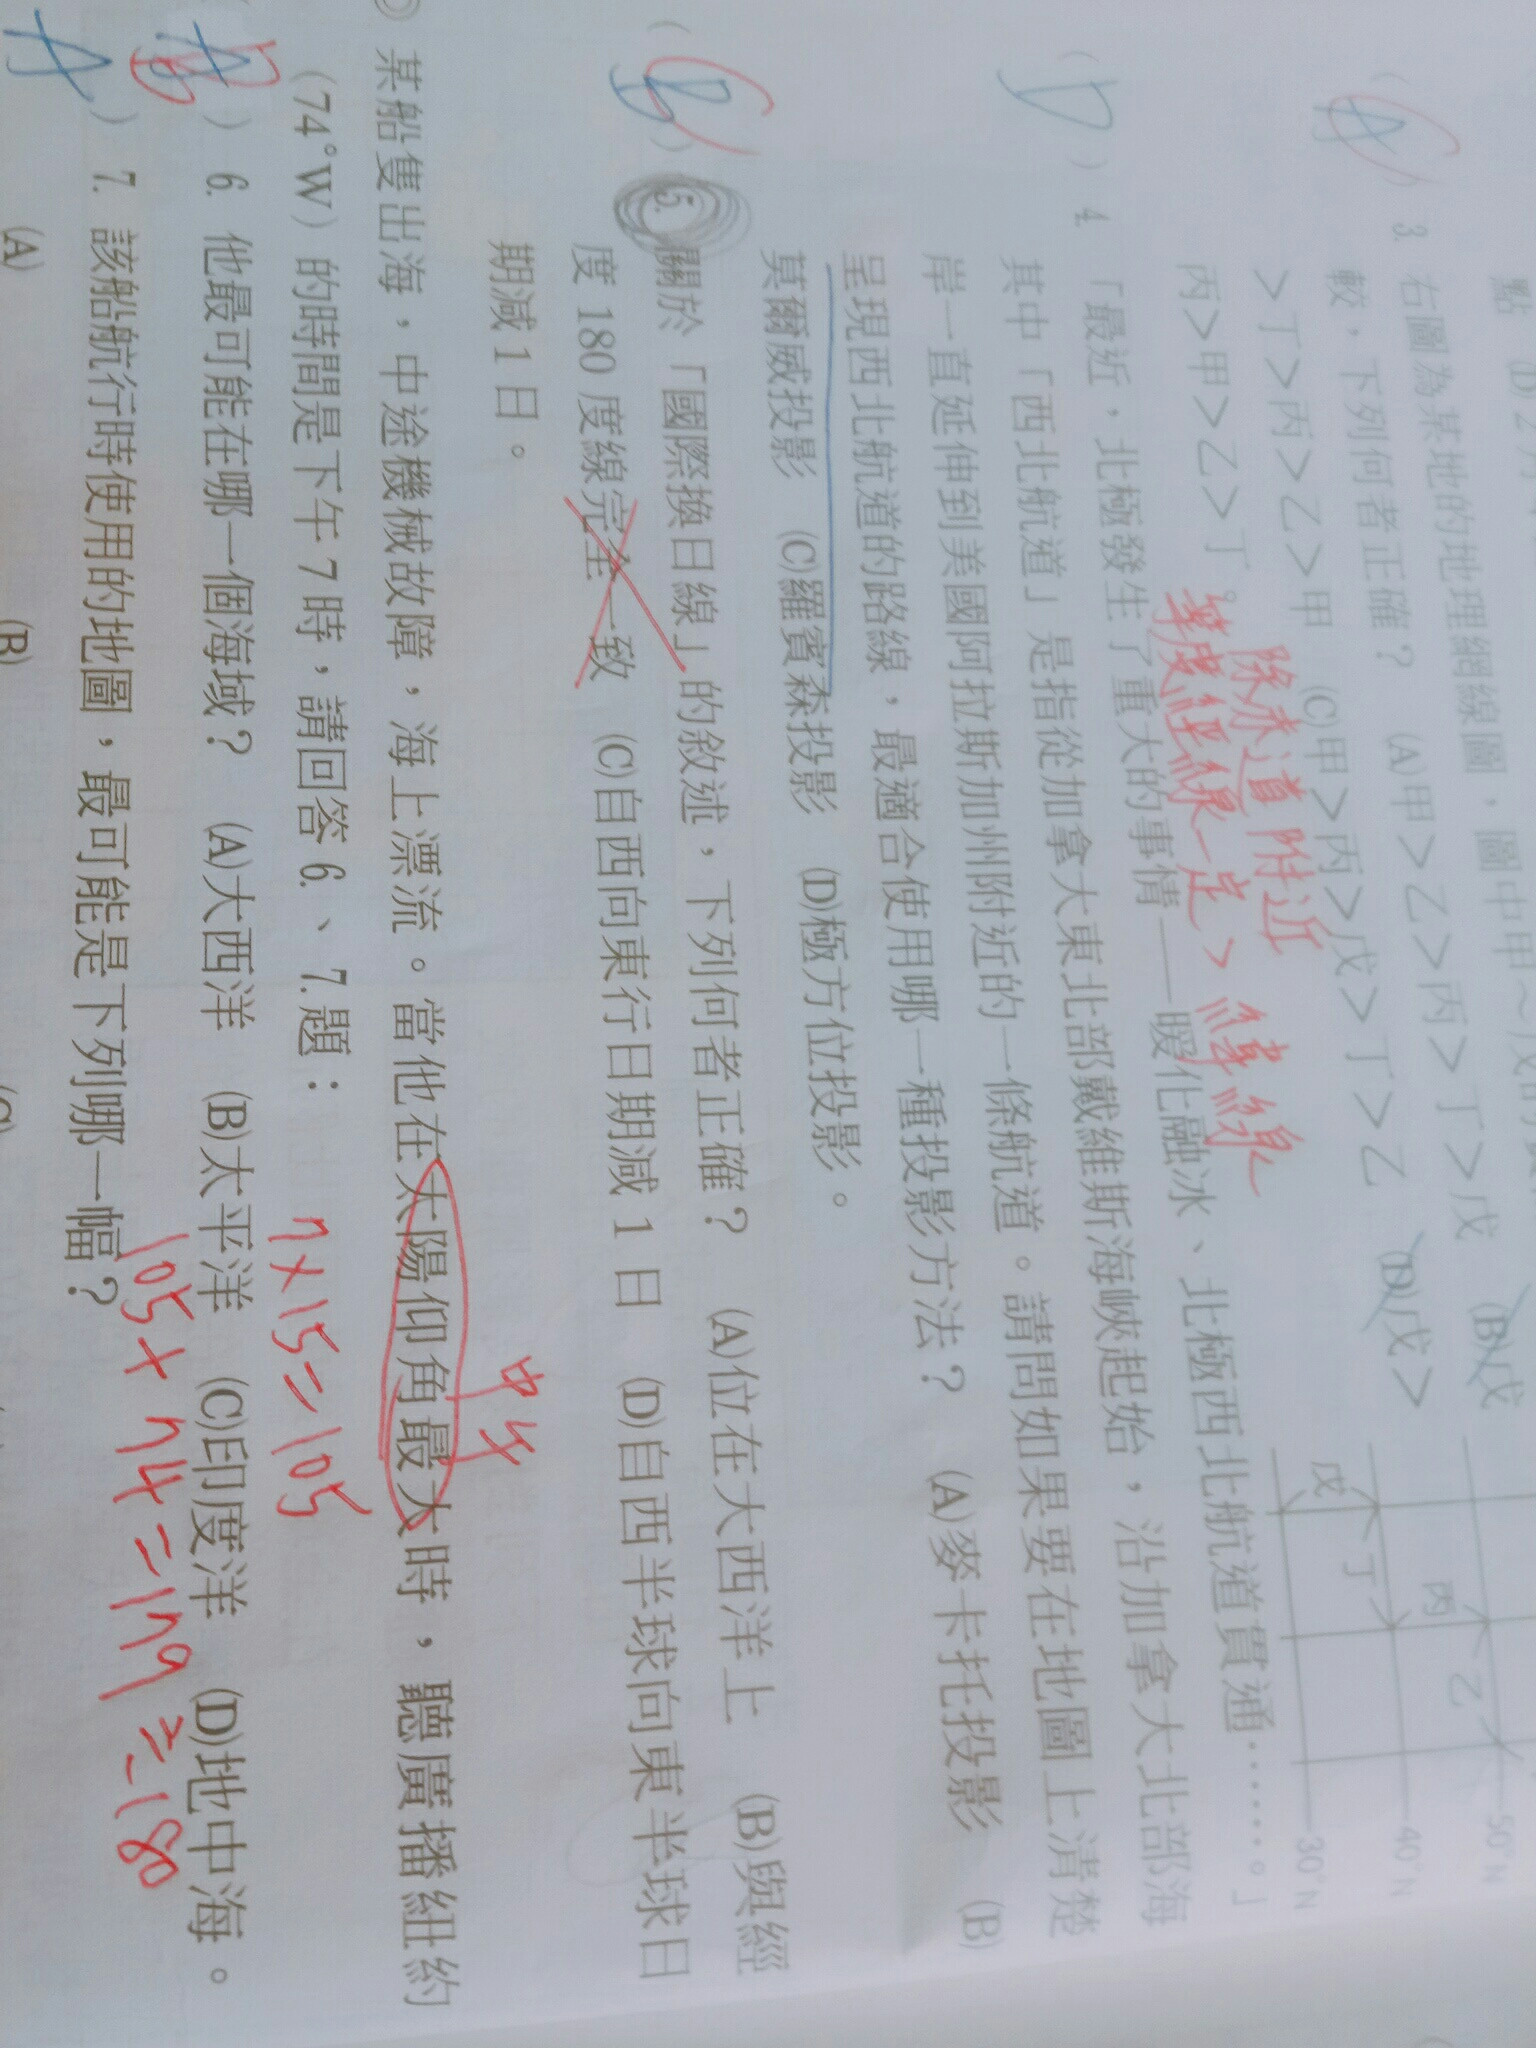 點 (D)2月
( A ) 3. 右圖為某地的地理網線圖，圖中甲～戊的
較，下列何者正確？ (A)甲＞乙＞丙＞丁＞戊 (B)戊
＞丁＞丙＞乙＞甲 (C)甲＞丙＞戊＞丁＞乙 (D)戊＞
丙＞甲＞乙＞丁。
除赤道附近
單度經線一定＞緯線
50°N
40°N
30°N
乙
丙
丁
戊
( D ) 4. 「最近，北極發生了重大的事情——暖化融冰、北極西北航道貫通……。」
其中「西北航道」是指從加拿大東北部戴維斯海峽起始，沿加拿大北部海
岸一直延伸到美國阿拉斯加州附近的一條航道。請問如果要在地圖上清楚
呈現西北航道的路線，最適合使用哪一種投影方法？ (A)麥卡托投影 (B)
莫爾威投影 (C)羅賓森投影 (D)極方位投影。
( ) 5. 關於「國際換日線」的敘述，下列何者正確？ (A)位在大西洋上 (B)與經
度180度線完全一致 (C)自西向東行日期減1日 (D)自西半球向東半球日
期減1日。
◎ 某船隻出海，中途機械故障，海上漂流。當他在太陽仰角最大時，聽廣播紐約
中午
(74°W) 的時間是下午7時，請回答6、7.題：
7×15=105
( B ) 6. 他最可能在哪一個海域？ (A)大西洋 (B)太平洋 (C)印度洋 (D)地中海。
105+74=179≒180
( A ) 7. 該船航行時使用的地圖，最可能是下列哪一幅？
(A) (B) (C)